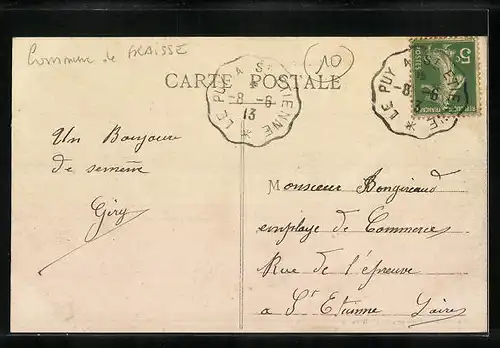 Commune de FRAISSE
10
CARTE POSTALE
LE PUY A ST ETIENNE
8 -6
13
LE PUY A ST ETIENNE
8 -6
13
5c
POSTES
Un Bonjour
de semène
Giry
Monsieur Bongiraud
employe de Commerce
Rue de l'épreuve
a St Etienne Loire